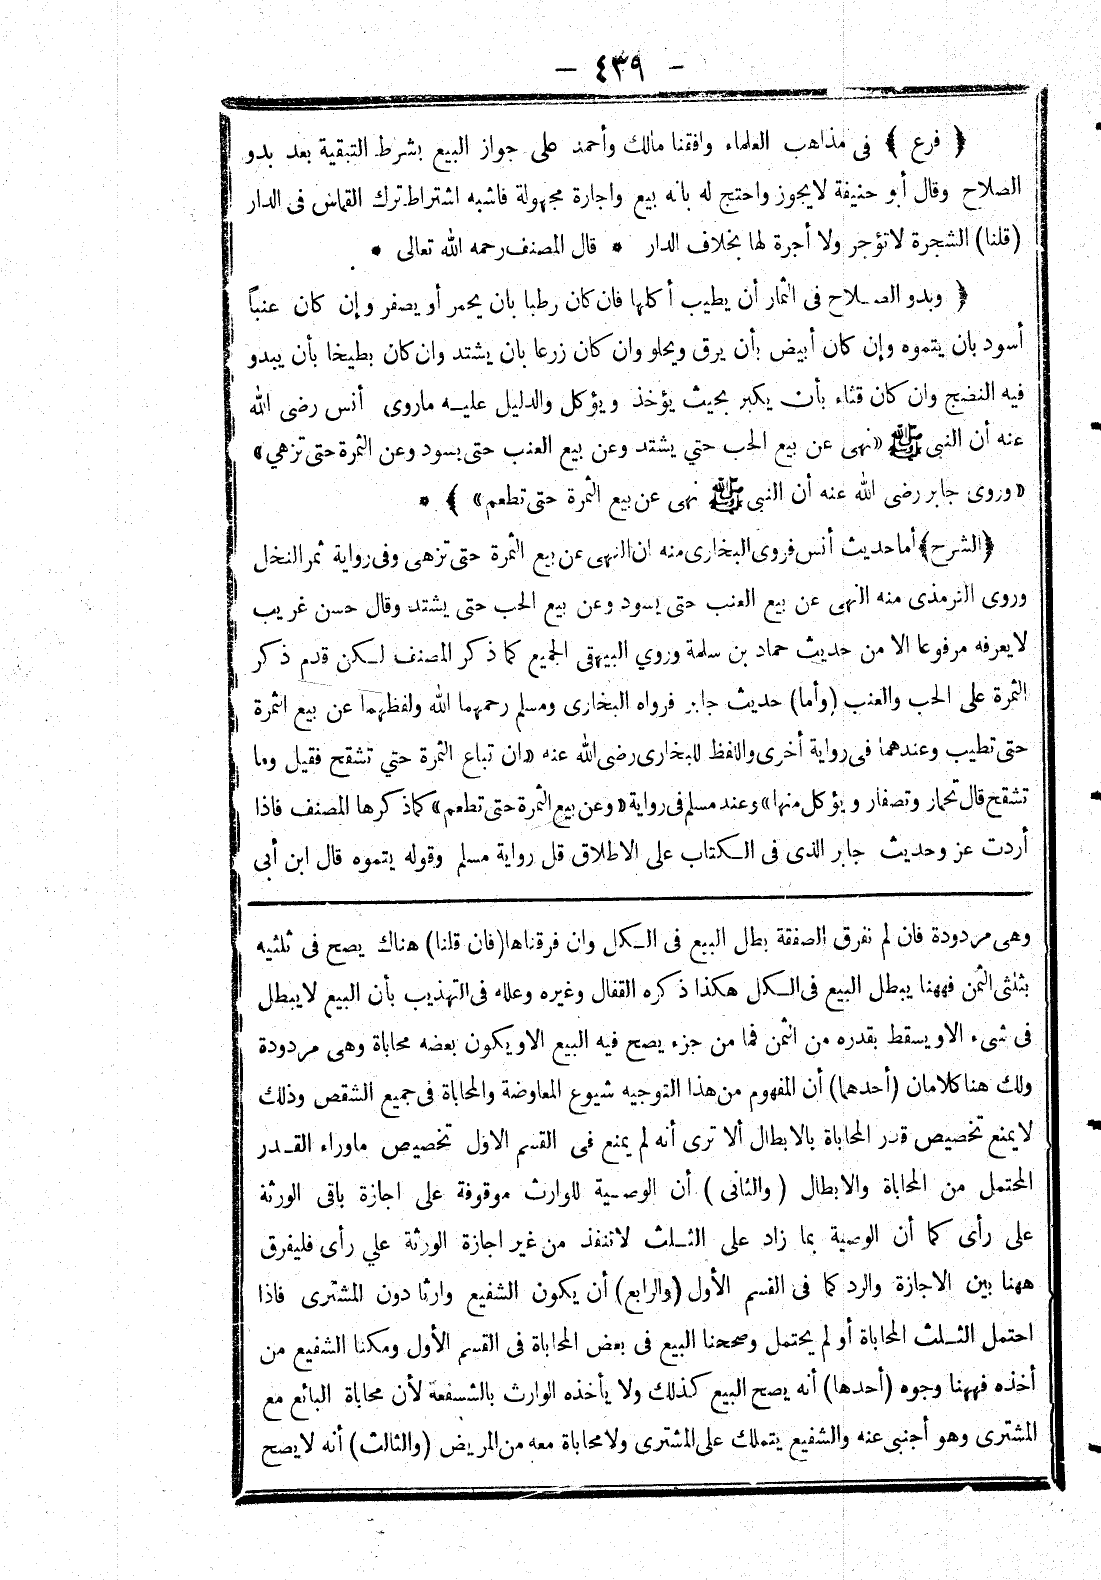 — ٤٣٩ —
﴿ فرع ﴾ فى مذاهب العلماء وافقنا مالك وأحمد على جواز البيع بشرط التبقية بعد بدو
الصلاح وقال أبو حنيفة لايجوز واحتج له بانه بيع واجارة مجهولة فاشبه اشتراط ترك القماش فى الدار
(قلنا) الشجرة لاتؤجر ولا أجرة لها بخلاف الدار * قال المصنف رحمه الله تعالى *
﴿ وبدو الصـلاح فى الثمار أن يطيب أكلها فان كان رطبا بان يحمر أو يصفر وإن كان عنباً
أسود بان يتموه وإن كان أبيض بأن يرق ويحلو وان كان زرعا بان يشتد وان كان بطيخا بأن يبدو
فيه النضج وان كان قثاء بأن يكبر بحيث يؤخذ ويؤكل والدليل عليـه ماروى أنس رضى الله
عنه أن النبى ﷺ «نهى عن بيع الحب حتي يشتد وعن بيع العنب حتى يسود وعن الثمرة حتى تزهي»
«وروى جابر رضى الله عنه أن النبى ﷺ نهى عن بيع الثمرة حتى تطعم» ﴾ *
﴿الشرح﴾ أما حديث أنس فروى البخارى منه ان النهى عن بيع الثمرة حتى تزهى وفى رواية ثمر النخل
وروى الترمذى منه النهى عن بيع العنب حتى يسود وعن بيع الحب حتى يشتد وقال حسن غريب
لايعرفه مرفوعا الا من حديث حماد بن سلمة وروي البيهقى الجميع كما ذكر المصنف لـكن قدم ذكر
الثمرة على الحب والعنب (وأما) حديث جابر فرواه البخارى ومسلم رحمهما الله ولفظهما عن بيع الثمرة
حتى تطيب وعندهما فى رواية أخرى واللفظ للبخارى رضى الله عنه «ان تباع الثمرة حتي تشقح فقيل وما
تشقح قال تحمار وتصفار ويؤكل منها» وعند مسلم فى رواية «وعن بيع الثمرة حتى تطعم» كما ذكرها المصنف فاذا
أردت عزو حديث جابر الذى فى الـكتاب على الاطلاق قل رواية مسلم وقوله يتموه قال ابن أبى
وهى مردودة فان لم نفرق الصفقة بطل البيع فى الـكل وان فرقناها (فان قلنا) هناك يصح فى ثلثيه
بثلثى الثمن فههنا يبطل البيع فى الـكل هكذا ذكره القفال وغيره وعلله فى التهذيب بأن البيع لايبطل
فى شىء الا ويسقط بقدره من الثمن فما من جزء يصح فيه البيع الا ويكون بعضه محاباة وهى مردودة
ولك هنا كلامان (أحدهما) أن المفهوم من هذا التوجيه شيوع المعاوضة والمحاباة فى جميع الشقص وذلك
لا يمنع تخصيص قدر المحاباة بالابطال ألا ترى أنه لم يمنع فى القسم الاول تخصيص ماوراء القـدر
المحتمل من المحاباة والابطال (والثانى) أن الوصـية للوارث موقوفة على اجازة باقى الورثة
على رأى كما أن الوصية بما زاد على الثـلث لاتنفذ من غير اجازة الورثة علي رأى فليفرق
ههنا بين الاجازة والرد كما فى القسم الأول (والرابع) أن يكون الشفيع وارثا دون المشترى فاذا
احتمل الثـلث المحاباة أو لم يحتمل وصححنا البيع فى بعض المحاباة فى القسم الأول ومكنا الشفيع من
أخذه فههنا وجوه (أحدها) أنه يصح البيع كذلك ولا يأخذه الوارث بالشفعة لأن محاباة البائع مع
المشترى وهو أجنبى عنه والشفيع يتملك على المشترى ولا محاباة معه من المريض (والثالث) أنه لا يصح